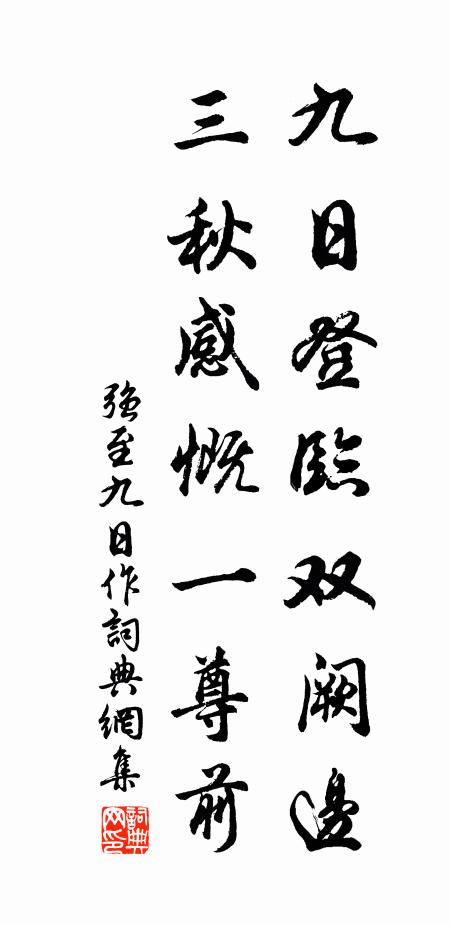 九日登臨双阙邊
三秋感慨一尊前
强至九日作詞典網集
詞典网印